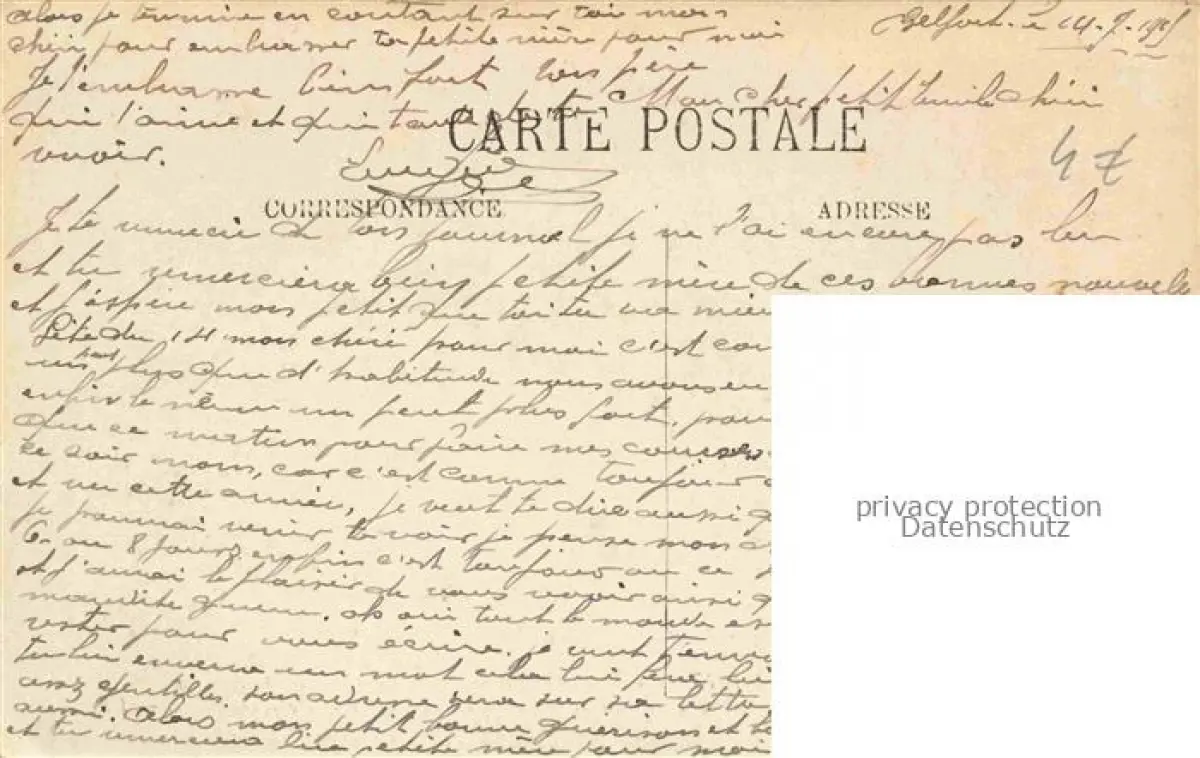 alors je termine en contant sur toi mon
chéri pour embrasser ta petite mère pour moi
Je t'embrasse bien fort ton père
qui t'aime et qui
Belfort. le 14.7.1915
Mon cher petit chéri
CARTE POSTALE
4 €
CORRESPONDANCE
ADRESSE
Je te remercie de ton journal je ne l'ai encore pas lu
et tu remerciera bien petite mère de ces bonnes nouvelles
et j'espère mon petit que toi tu va mieu
fête du 14 mon chéri pour moi c'est
un peut plus que d'habitude nous avons eu
enfin le même un peut plus fort,
que ce matin pour faire mes courses
ce soir non, car c'est comme toujour
et cette année, je veut te dire aussi
je pourrai venir te voir je pense mon
6 ou 8 jours enfin c'est toujour
et j'aurai le plaisir de vous revoir ainsi
maudite guerre. oh oui tout le monde
rester pour vous écrire. je veut
tu lui enverra un mot cela lui fera
assez gentilles. son adresse sera sur sa lettre
aussi. alors mon petit bonne guérison et
et tu remerciera bien petite mère pour moi
privacy protection
Datenschutz